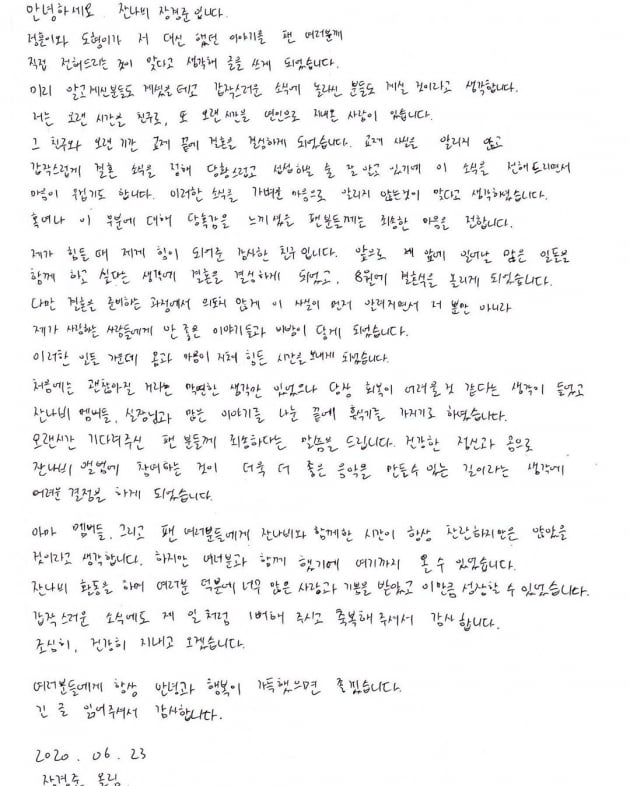 안녕하세요. 잔나비 장경준입니다.
정훈이와 도형이가 저 대신 했던 이야기를 팬 여러분께
직접 전해드리는 것이 맞다고 생각해 글을 쓰게 되었습니다.
미리 알고계신분들도 계셨을테고 갑작스러운 소식에 놀라신 분들도 계실 것이라고 생각합니다.
저는 오랜 시간을 친구로, 또 오랜 시간을 연인으로 지내온 사람이 있습니다.
그 친구와 오랜 기간 교제 끝에 결혼을 결심하게 되었습니다. 교제 사실을 알리지 않고
갑작스럽게 결혼 소식을 전해 당황스럽고 섭섭하실 줄 잘 알고 있기에 이 소식을 전해드리면서
마음이 무겁기도 합니다. 이러한 소식을 가벼운 마음으로 알리지 않는것이 맞다고 생각하였습니다.
혹여나 이 부분에 대해 당혹감을 느끼셨을 팬분들께는 죄송한 마음을 전합니다.
제가 힘들 때 제게 힘이 되어준 감사한 친구입니다. 앞으로 제 앞에 일어날 많은 일들을
함께 하고 싶다는 생각에 결혼을 결심하게 되었고, 8월에 결혼식을 올리게 되었습니다.
다만 결혼을 준비하는 과정에서 의도치 않게 이 사실이 먼저 알려지면서 저 뿐만 아니라
제가 사랑하는 사람들에게 안 좋은 이야기들과 비방이 닿게 되었습니다.
이러한 일들 가운데 몸과 마음이 지쳐 힘든 시간을 보내게 되었습니다.
처음에는 괜찮아질 거라는 막연한 생각만 있었으나 당장 회복이 어려울것 같다는 생각이 들었고
잔나비 멤버들, 실장님과 많은 이야기를 나눈 끝에 휴식기를 가지기로 하였습니다.
오랜시간 기다려주신 팬 분들께 죄송하다는 말씀을 드립니다. 건강한 정신과 몸으로
잔나비 앨범에 참여하는 것이 더욱 더 좋은 음악을 만들수 있는 길이라는 생각에
어려운 결정을 하게 되었습니다.
아마 멤버들, 그리고 팬 여러분들에게 잔나비와 함께한 시간이 항상 찬란하지만은 않았을
것이라고 생각합니다. 하지만 여러분과 함께 했기에 여기까지 올 수 있었습니다.
잔나비 활동을 하며 여러분 덕분에 너무 많은 사랑과 기쁨을 받았고 이만큼 성장할 수 있었습니다.
갑작스러운 소식에도 제 일처럼 기뻐해 주시고 축복해 주셔서 감사합니다.
조심히, 건강히 지내고 오겠습니다.
여러분들에게 항상 안녕과 행복이 가득했으면 좋겠습니다.
긴 글 읽어주셔서 감사합니다.
2020. 06. 23
장경준 올림